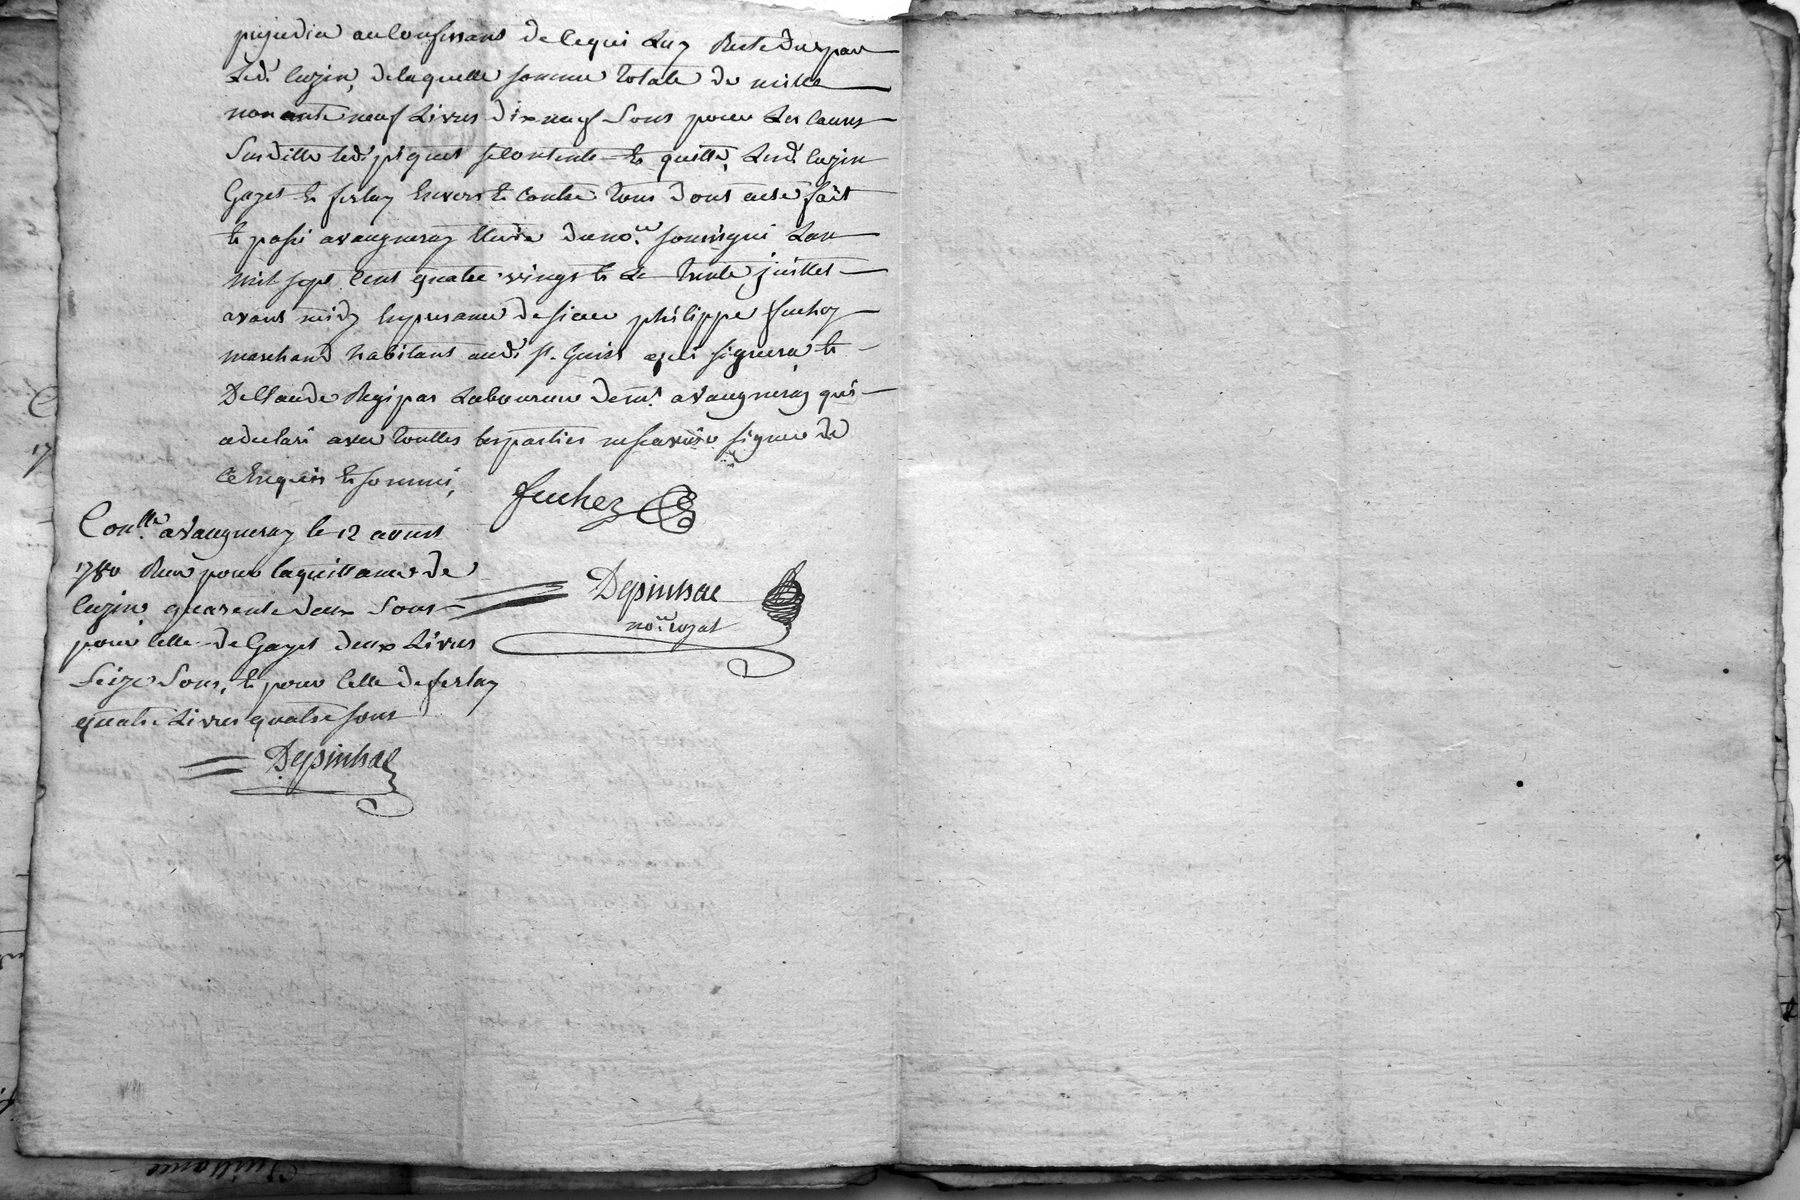 prejudice au Confessant de Ce qui Luy Reste du par
Led.t Cuzin, de laquelle somme totale de mille
nonante neuf Livres dix neuf Sous pour Les causes
Susditte led.t piguet se Contente et quitte, Lesd.t Cuzin
Gayet et ferlay Envers et Contre tous dont acte fait
et passé a vaugneray Etude du no.re soussigné Lan
mil sept Cent quatre vingt et Le trente juillet
avant midy En presance de sieur philippe fuchez
marchand habitant aud.t st. Genis qui signera et
De Claude Regipas Laboureur de m.t a vaugneray qui
a declaré avec touttes les parties ne scavoir signer de
Ce Enquis et sommé,
fuchez
Con.lle a vaugneray le 12 aoust
1780 Reçu pour la quittance de
Cuzin quarente deux Sous
pour Celle de Gayet deux Livres
Seize Sous, et pour Celle de ferlay
quatre Livres quatre sous
Depinhac
no.re royal
Depinhac